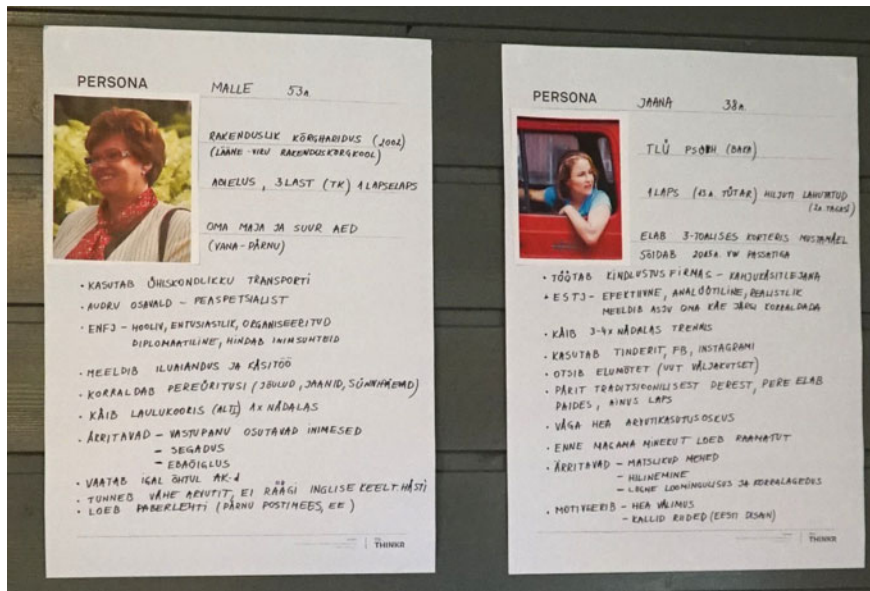 PERSONA
MALLE 53a.
RAKENDUSLIK KÕRGHARIDUS (2002)
(LÄÄNE-VIRU RAKENDUSKÕRGKOOL)
ABIELUS, 3 LAST (TK) 1 LAPSELAPS
OMA MAJA JA SUUR AED
(VANA-PÄRNU)
• KASUTAB ÜHISKONDLIKKU TRANSPORTI
• AUDRU OSAVALD – PEASPETSIALIST
• ENFJ – HOOLIV, ENTUSIASTLIK, ORGANISEERITUD
DIPLOMAATILINE, HINDAB INIMSUHTEID
• MEELDIB ILUAIANDUS JA KÄSITÖÖ
• KORRALDAB PEREÜRITUSI (JÕULUD, JAANID, SÜNNIPÄEVAD)
• KÄIB LAULUKOORIS (ALT) 1x NÄDALAS
• ÄRRITAVAD – VASTUPANU OSUTAVAD INIMESED
– SEGADUS
– EBAÕIGLUS
• VAATAB IGAL ÕHTUL AK-d
• TUNNEB VÄHE ARVUTIT, EI RÄÄGI INGLISE KEELT HÄSTI
• LOEB PABERLEHTI (PÄRNU POSTIMEES, EE)
THINKR
PERSONA
JAANA 38a.
TLÜ PSÜHH (BAKA)
1 LAPS (13a. TÜTAR) HILJUTI LAHUTATUD
(2a. TAGASI)
ELAB 3-TOALISES KORTERIS MUSTAMÄEL
SÕIDAB 2015a. VW PASSATIGA
• TÖÖTAB KINDLUSTUSFIRMAS – KAHJUKÄSITLEJANA
• ESTJ – EFEKTIIVNE, ANALÜÜTILINE, REALISTLIK
MEELDIB ASJU OMA KÄE JÄRGI KORRALDADA
• KÄIB 3-4x NÄDALAS TRENNIS
• KASUTAB TINDERIT, FB, INSTAGRAMI
• OTSIB ELUMÕTET (UUT VÄLJAKUTSET)
• PÄRIT TRADITSIOONILISEST PEREST, PERE ELAB
PAIDES, AINUS LAPS
• VÄGA HEA ARVUTIKASUTUSOSKUS
• ENNE MAGAMA MINEKUT LOEB RAAMATUT
• ÄRRITAVAD – MATSLIKUD MEHED
– HILINEMINE
– LIIGNE LOOMINGULISUS JA KORRALAGEDUS
• MOTIVEERIB – HEA VÄLIMUS
– KALLID RIIDED (EESTI DISAIN)
THINKR